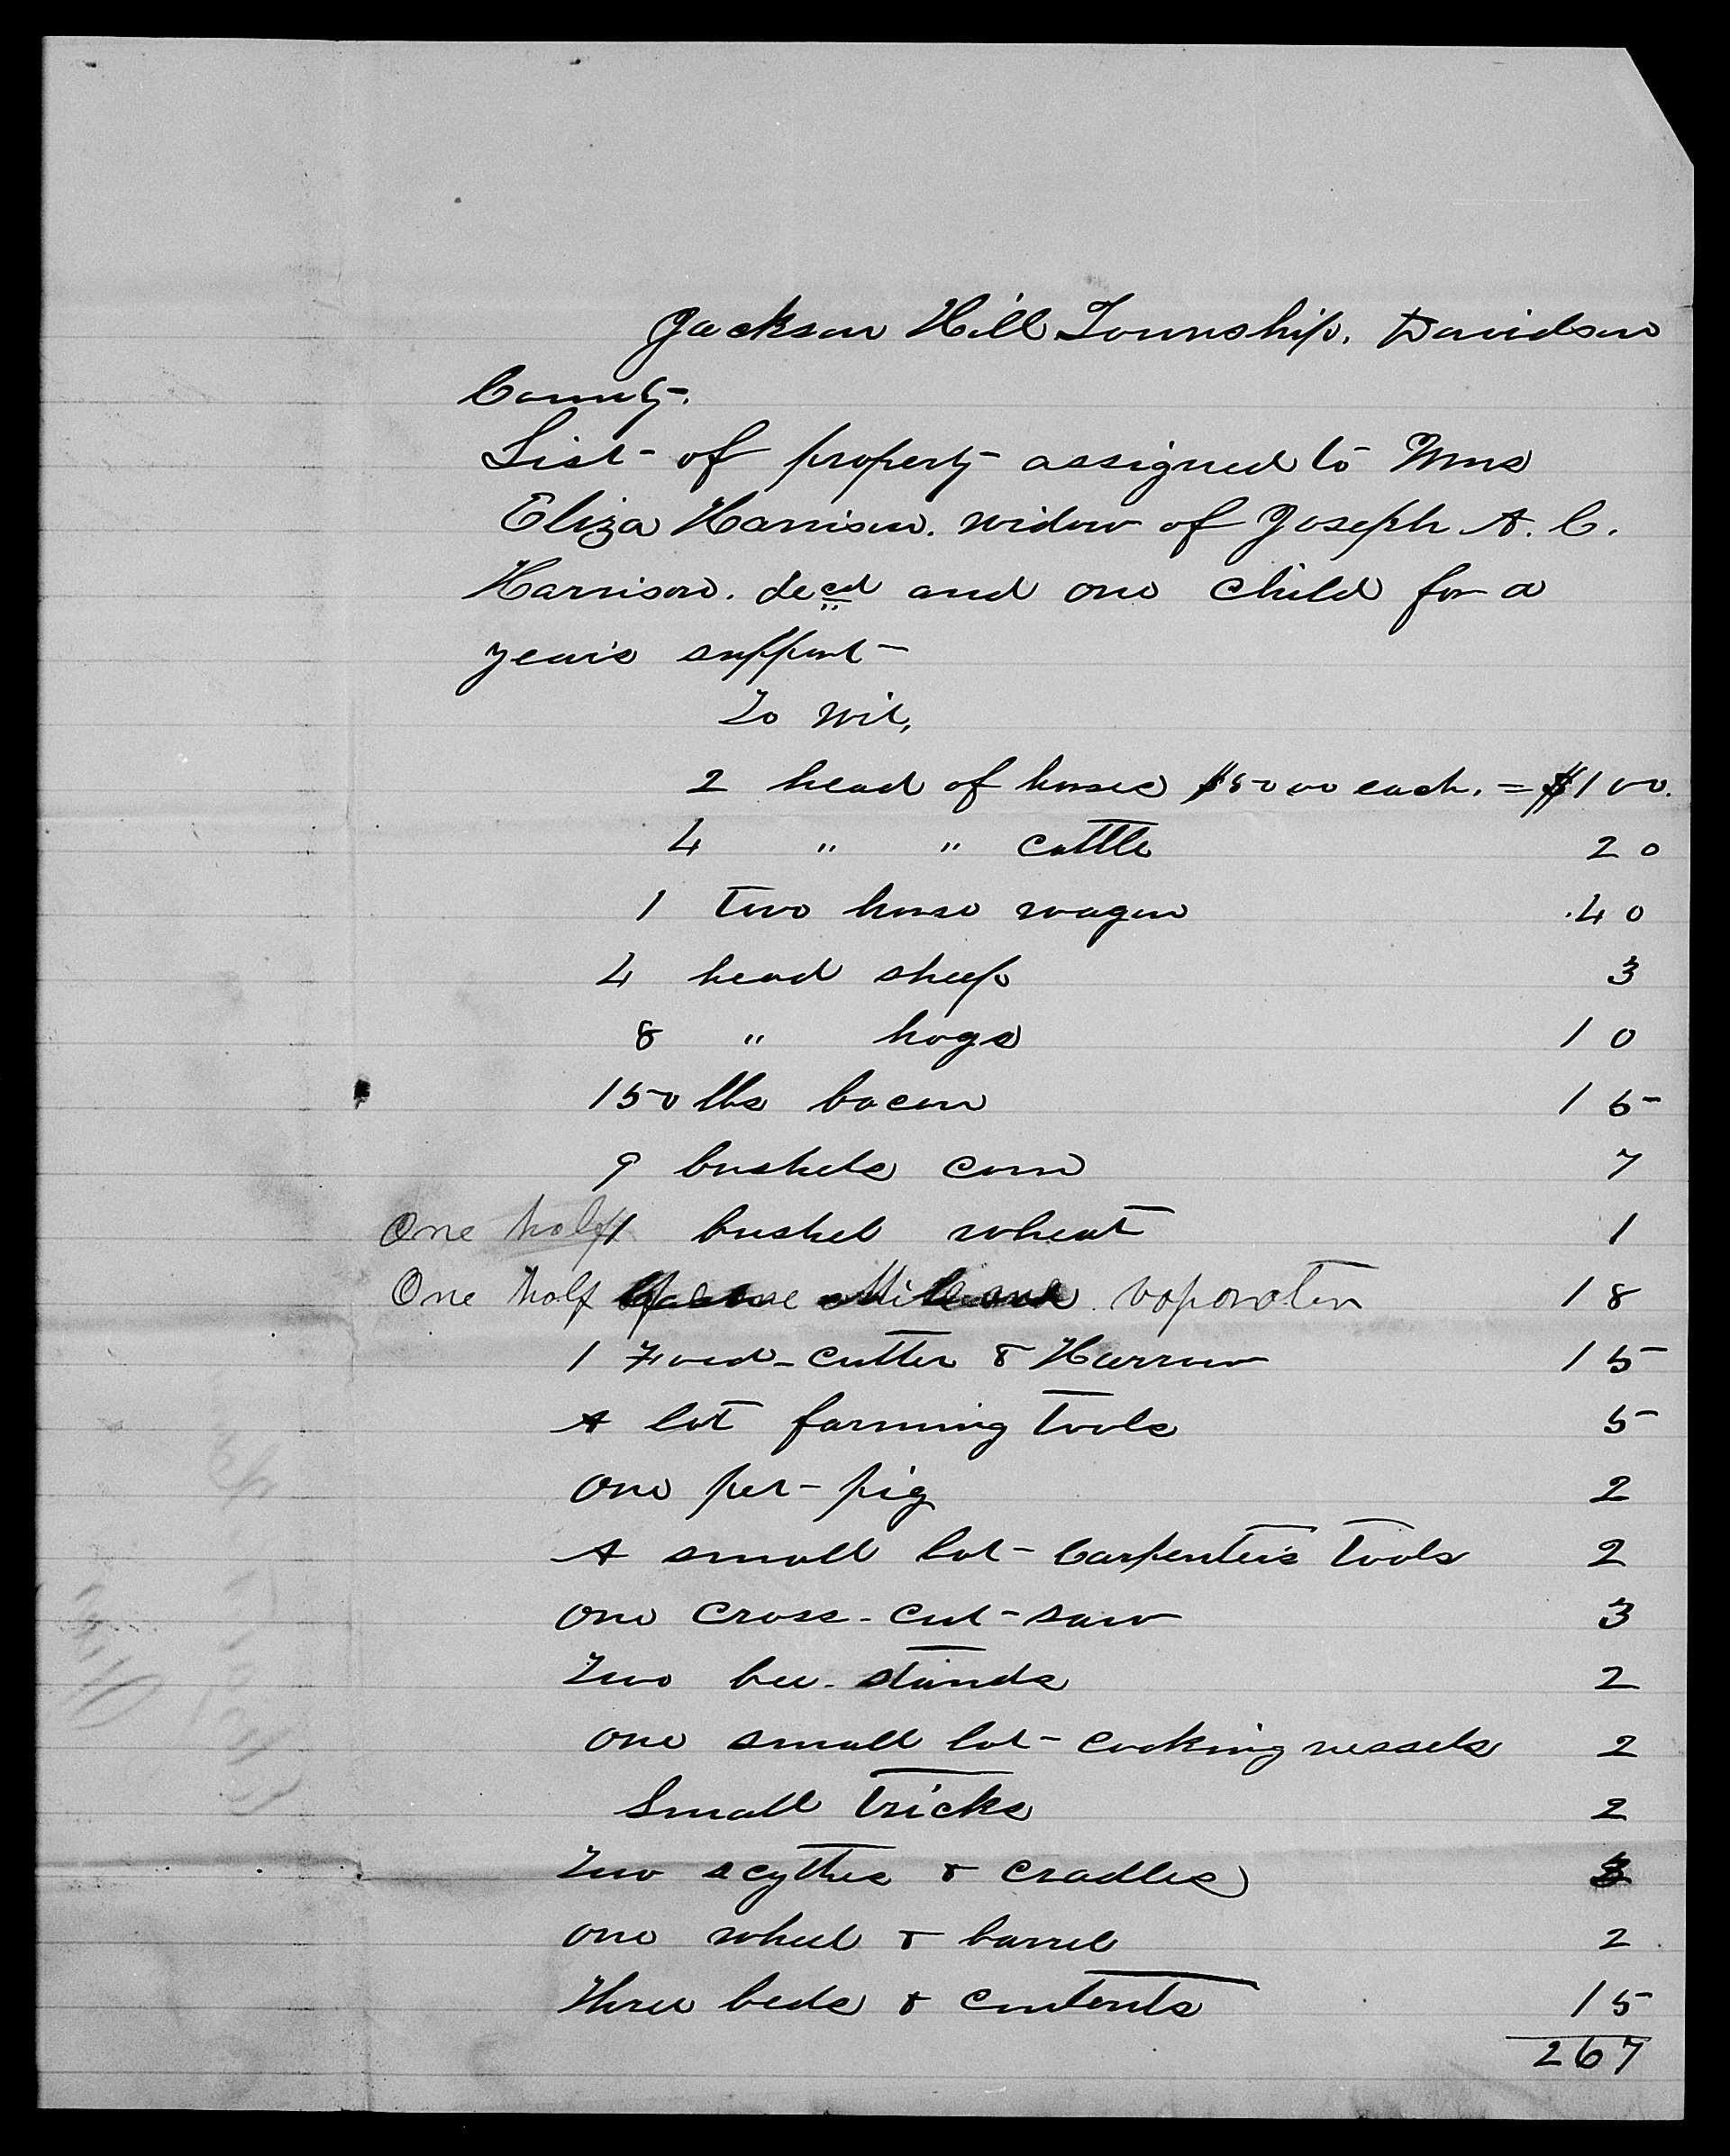 Jackson Hill Township, Davidson
County.
List of property assigned to Mrs
Eliza Harrison. widow of Joseph A. C.
Harrison. decd and one child for a
year's support
To wit,
2 head of horses $50 00 each. = $100.
4 " " cattle 20
1 two horse wagon 40
4 head sheep 3
8 " hogs 10
150 lbs bacon 15
9 bushels corn 7
One half 1 bushel wheat 1
One half vaporater 18
1 Feed-cutter & Harrow 15
A lot farming tools 5
One pet-pig 2
A small lot Carpenter's tools 2
One cross-cut-saw 3
Two bee-stands 2
One small lot cooking vessels 2
Small tricks 2
Two scythes & cradles 3
One wheel & barrel 2
Three beds & contents 15
267